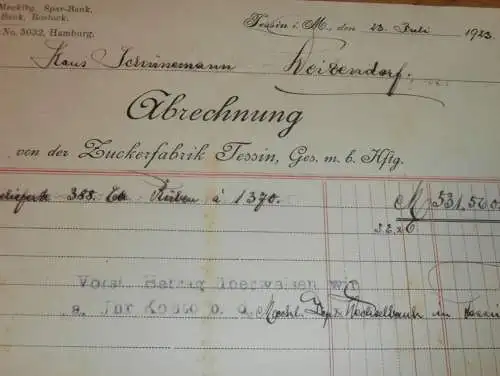 Mecklbg. Spar-Bank,
Bank, Rostock.
No. 5032, Hamburg.
Tessin i. M., den 23. Juli 1923
Hans Schünemann Weitendorf.
Abrechnung
von der Zuckerfabrik Tessin, Ges. m. b. Hftg.
geliefert 388. Ctr Rüben à 1370. M 531,560.
Vorst Betrag überweisen wir
a. Ihr Konto b. d. Meckl. Dep. & Wechselbank in